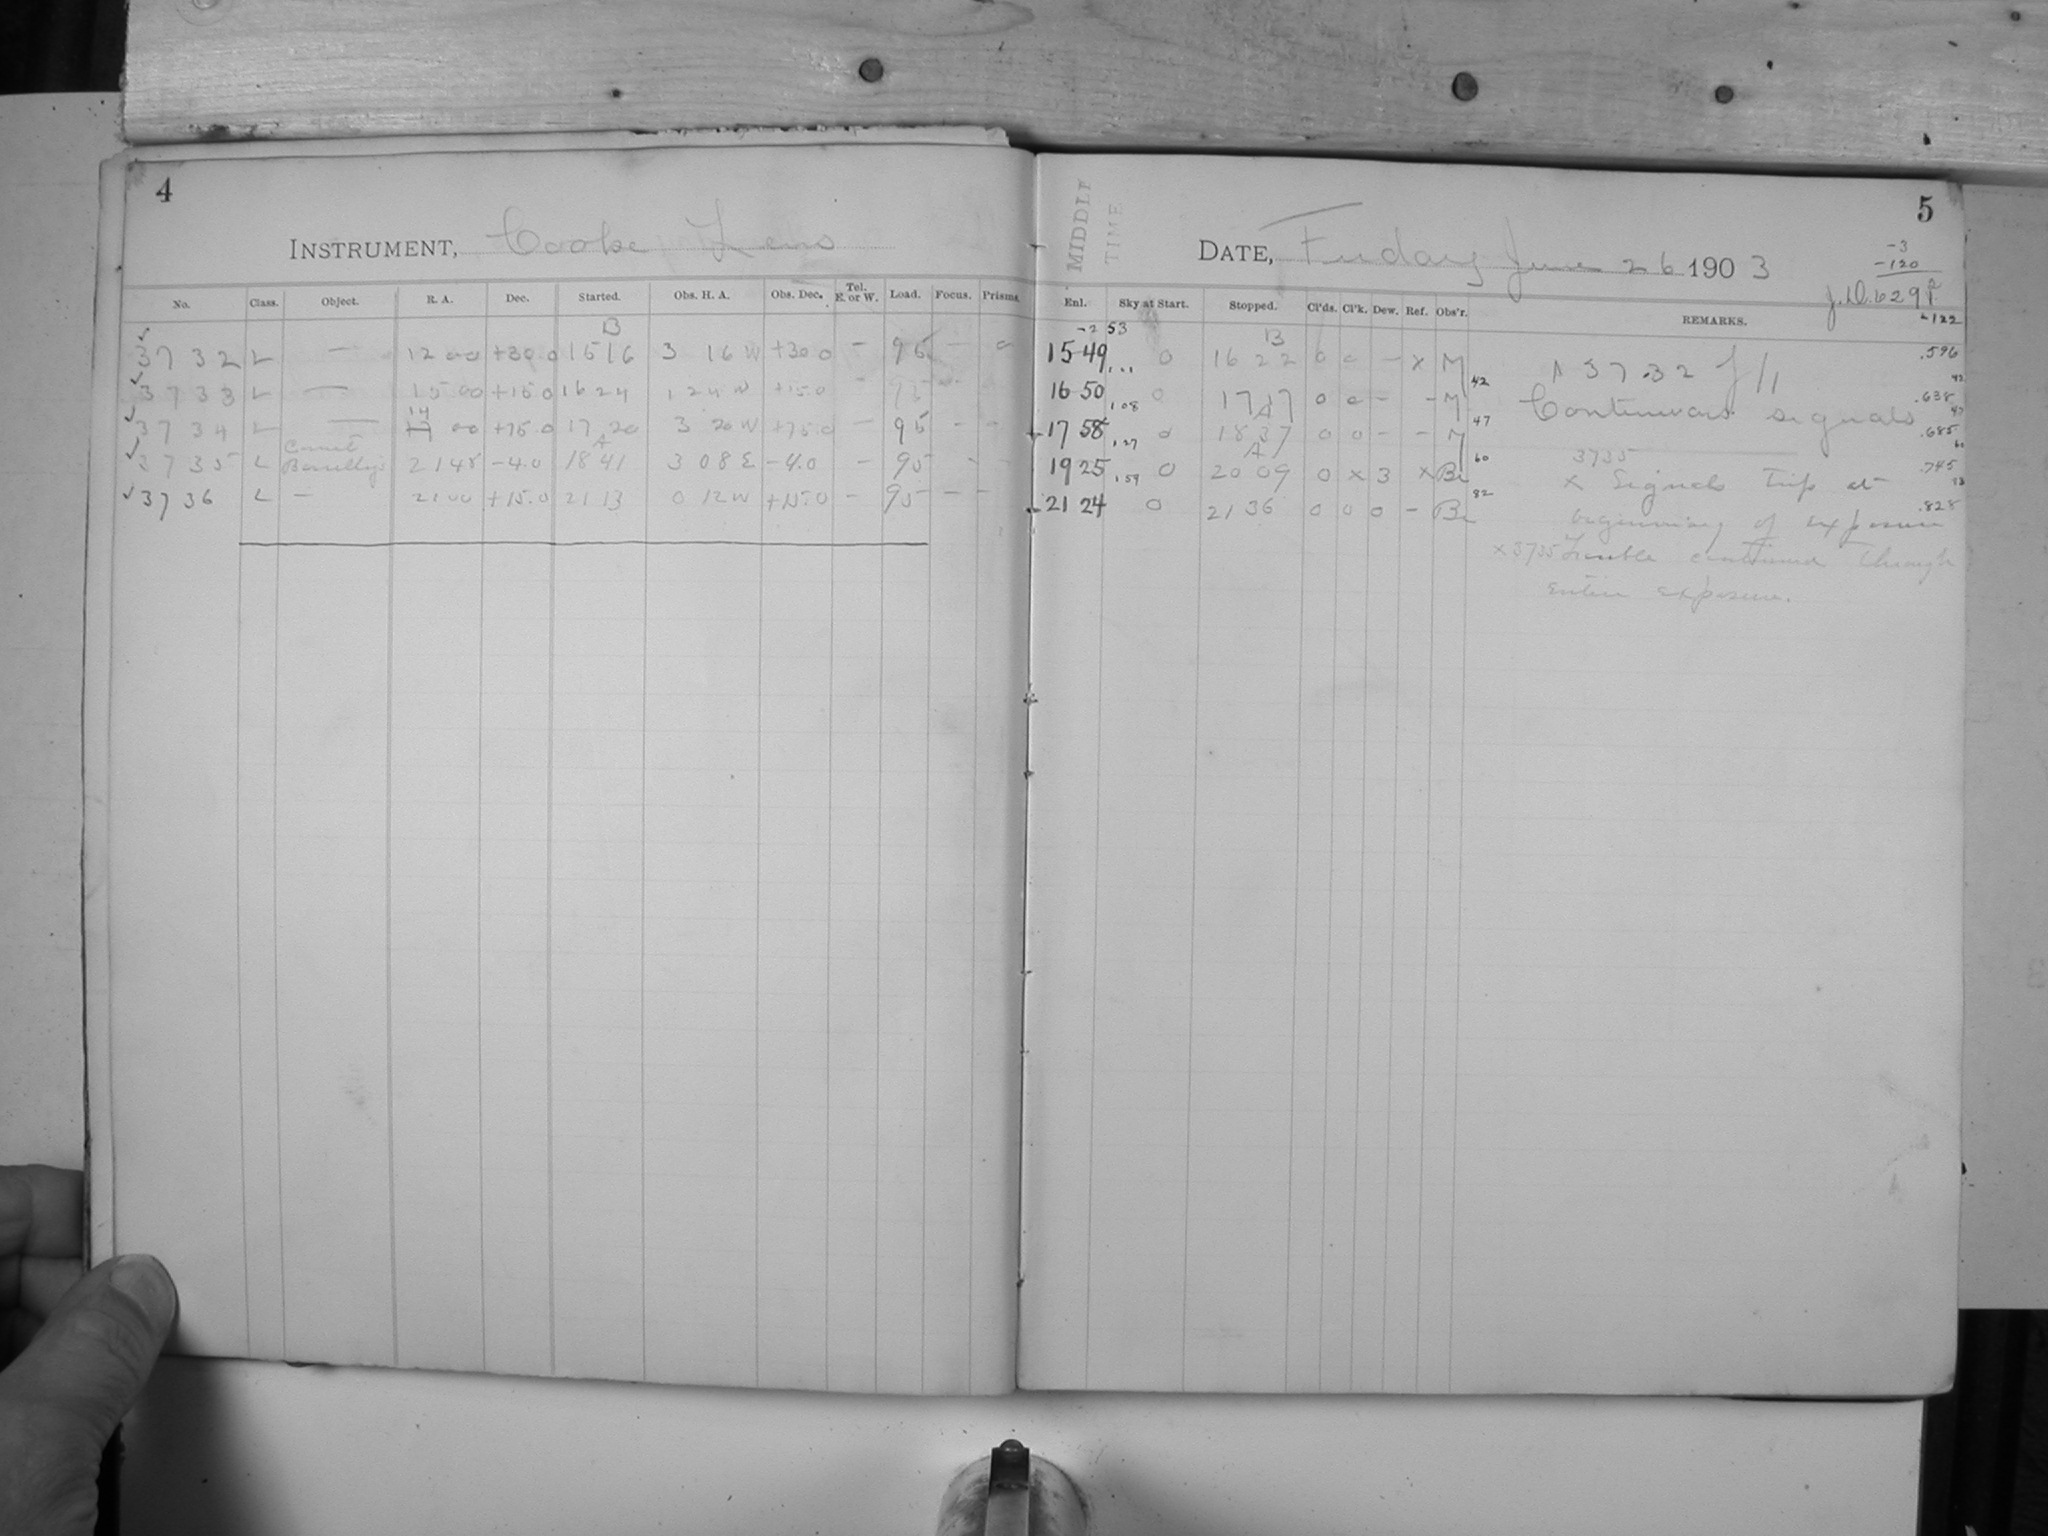 4
INSTRUMENT, Cooke Lens
No. Class. Object. R. A. Dec. Started. Obs. H. A. Obs. Dec. Tel. E. or W. Load. Focus. Prisms.
B
3732 L — 12 00 +30.0 15 16 3 16 W +30 0 — 95 —
3733 L — 15 00 +15.0 16 24 1 24 W +15.0 95
14
3734 L — 00 +75.0 17 20 3 20 W +75.0 — 95 - -
Comet A
3735 L Borrelly's 21 48 -4.0 18 41 3 08 E -4.0 — 95 - -
3736 L — 21 00 +15.0 21 13 0 12 W +15.0 — 95 — —
MIDDLE
TIME
5
DATE, Friday June 26 1903
-3
-120
Enl. Sky at Start. Stopped. Cl'ds. Cl'k. Dew. Ref. Obs'r. REMARKS.
-2 53
-122
B
15 49 0 16 22 0 0 — x M
16 50 1.08 0 17 17 0 0 - - M 42
A
17 58 1.27 0 18 37 0 0 - - M 47
A
19 25 1.59 0 20 09 0 x 3 x Br 60
21 24 0 21 36 0 0 0 - Br 82
3732
Continuous signals
3735
x Signals trip at
beginning of exposure
x 3735 Trouble continued through
entire exposure.
.596
42
.638
47
.685
60
.745
83
.828